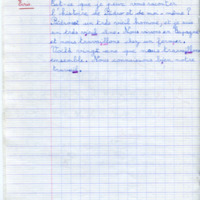 Est-ce que je peux vous raconter
l'histoire de Pedro et de moi-même ?
Pedro est un très vieil homme, et je suis
un très vieil âne. Nous vivons en Espagne
et nous travaillons chez un fermier.
Voilà vingt ans que nous travaillons
ensemble. Nous connaissons bien notre
travail.